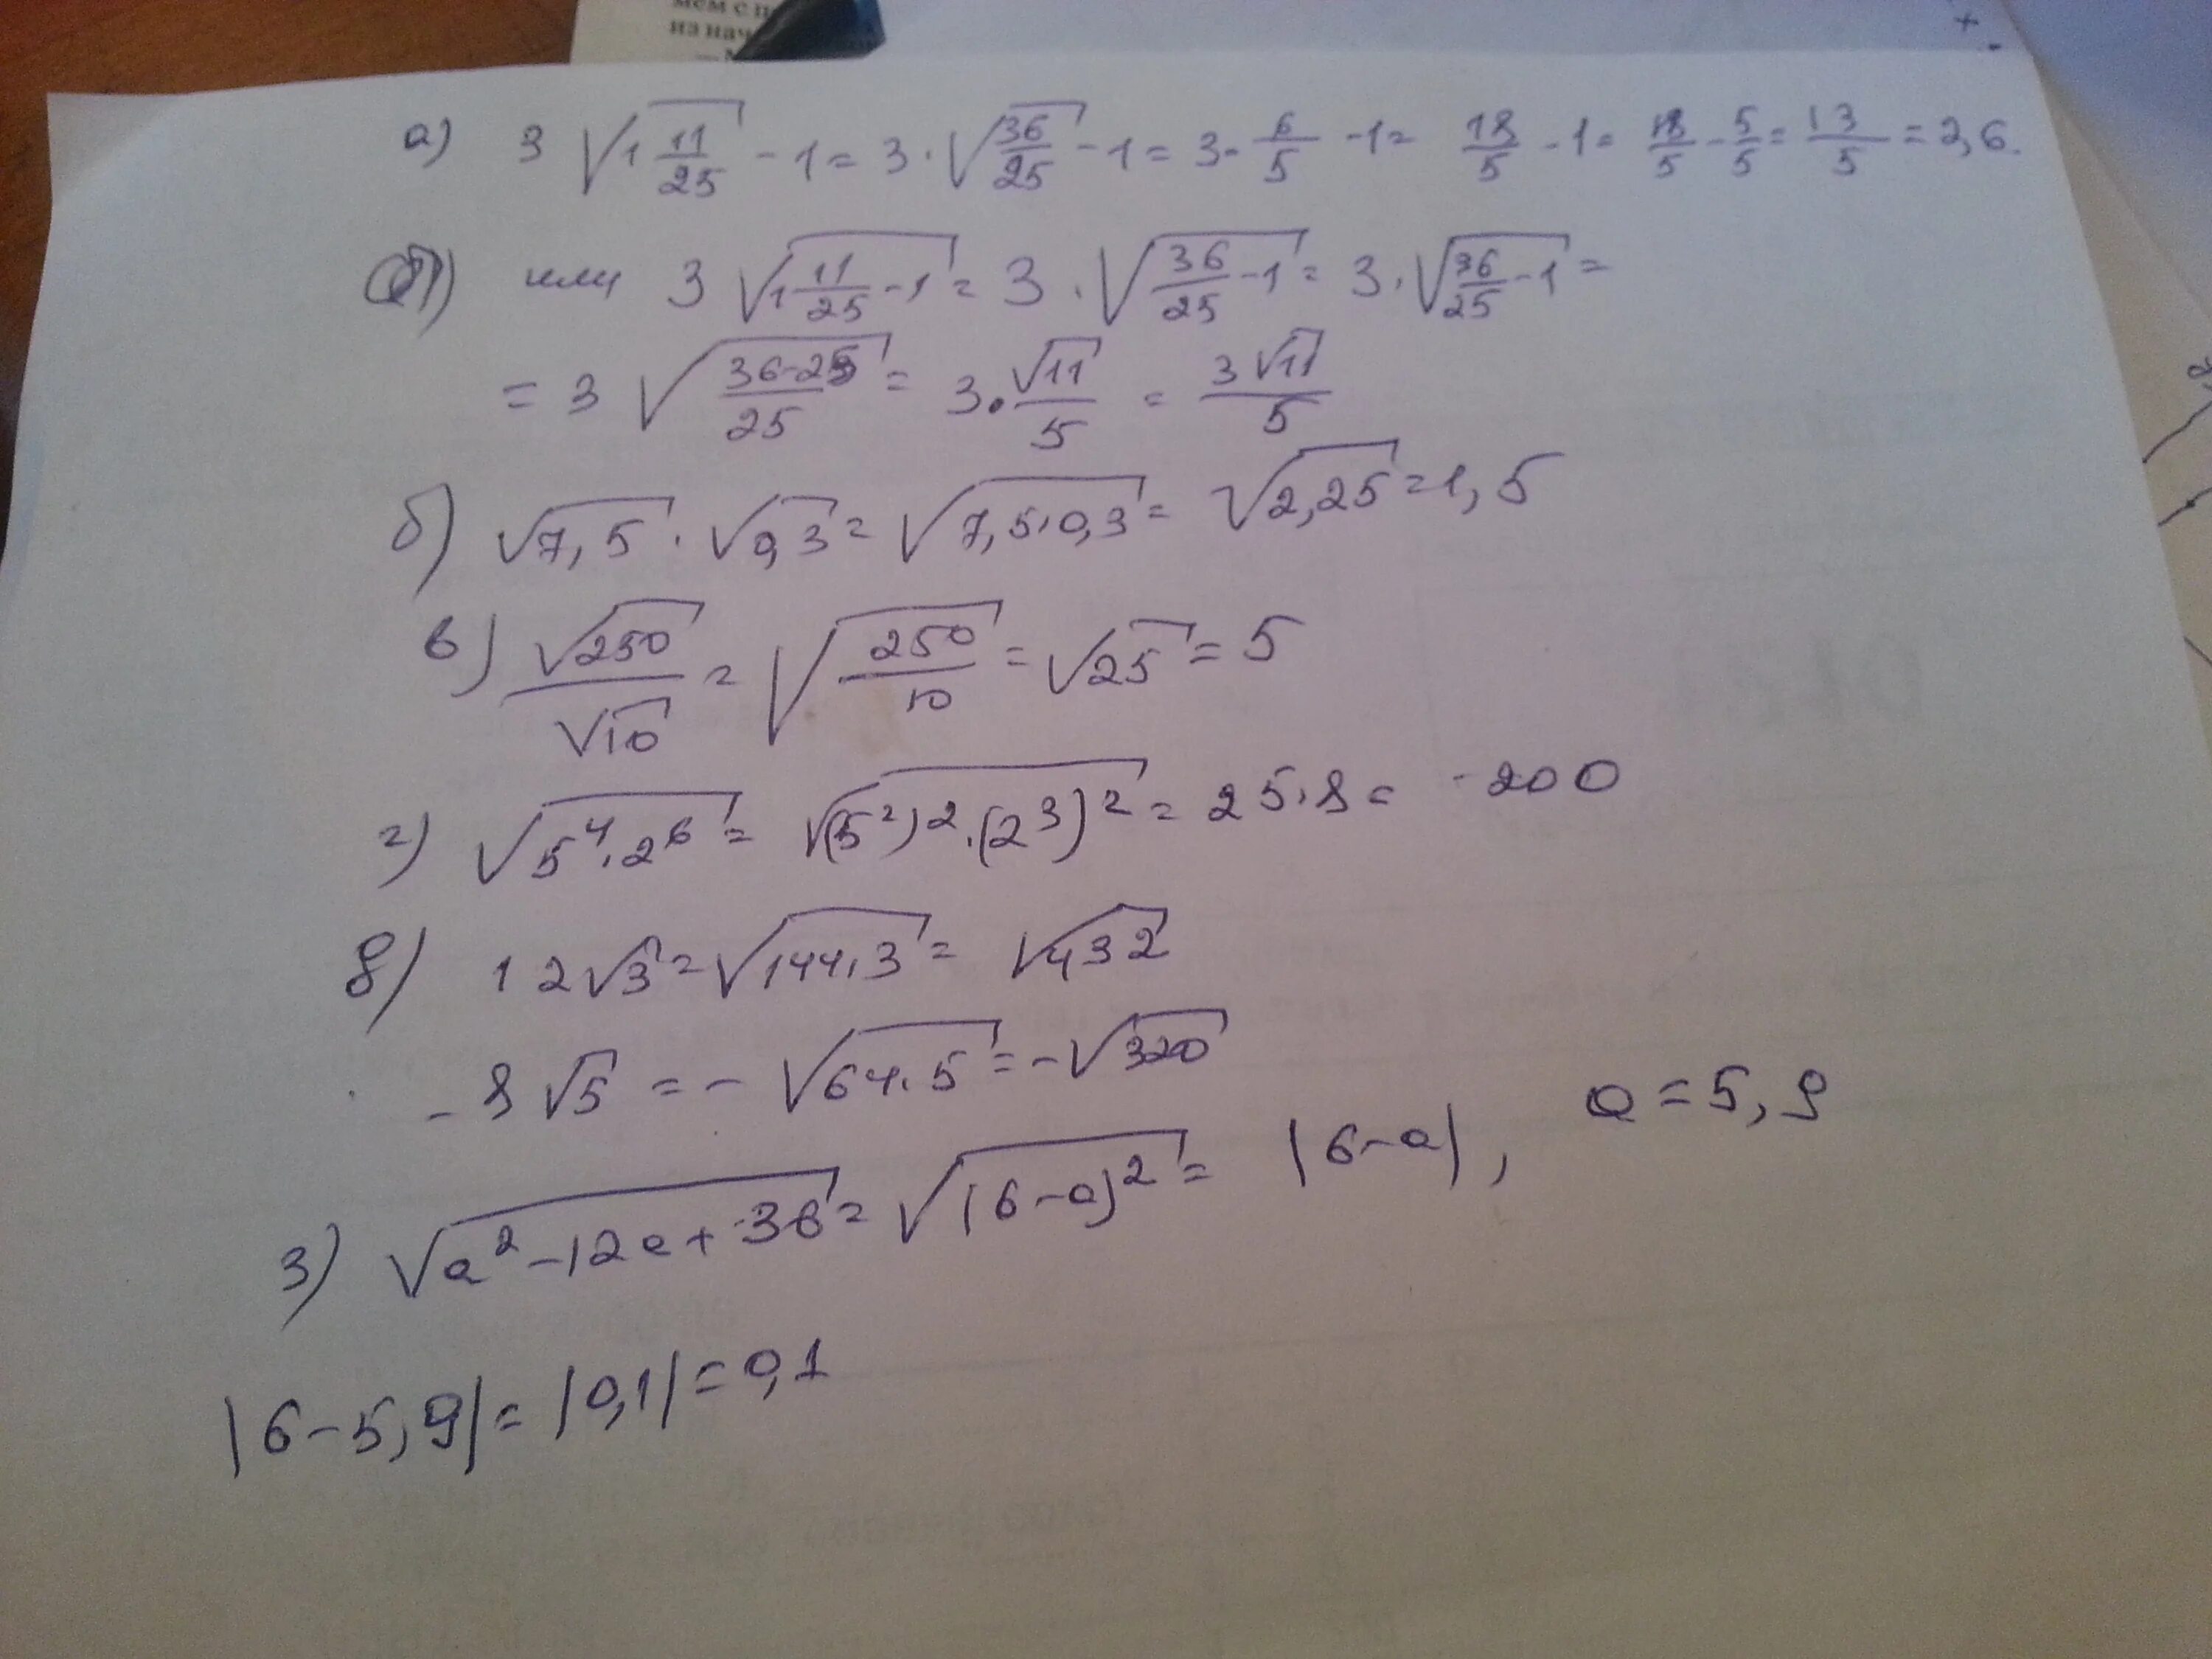 мем с п
из нач
а) 3 √(1 11/25) - 1 = 3 · √(36/25) - 1 = 3 · 6/5 - 1 = 18/5 - 1 = 18/5 - 5/5 = 13/5 = 2,6.
или 3 √(1 11/25 - 1) = 3 · √(36/25 - 1) = 3 · √(36/25 - 1) =
= 3 √((36-25)/25) = 3 · √11/5 = 3√11/5
б) √7,5 · √0,3 = √(7,5·0,3) = √2,25 = 1,5
в) √250/√10 = √(250/10) = √25 = 5
г) √(5⁴·2⁶) = √((5²)²·(2³)²) = 25·8 = -200
8) 12√3 = √(144·3) = √432
-8√5 = -√(64·5) = -√320
3) √(a²-12a+36) = √((6-a)²) = |6-a|, a = 5,9
|6-5,9| = |0,1| = 0,1